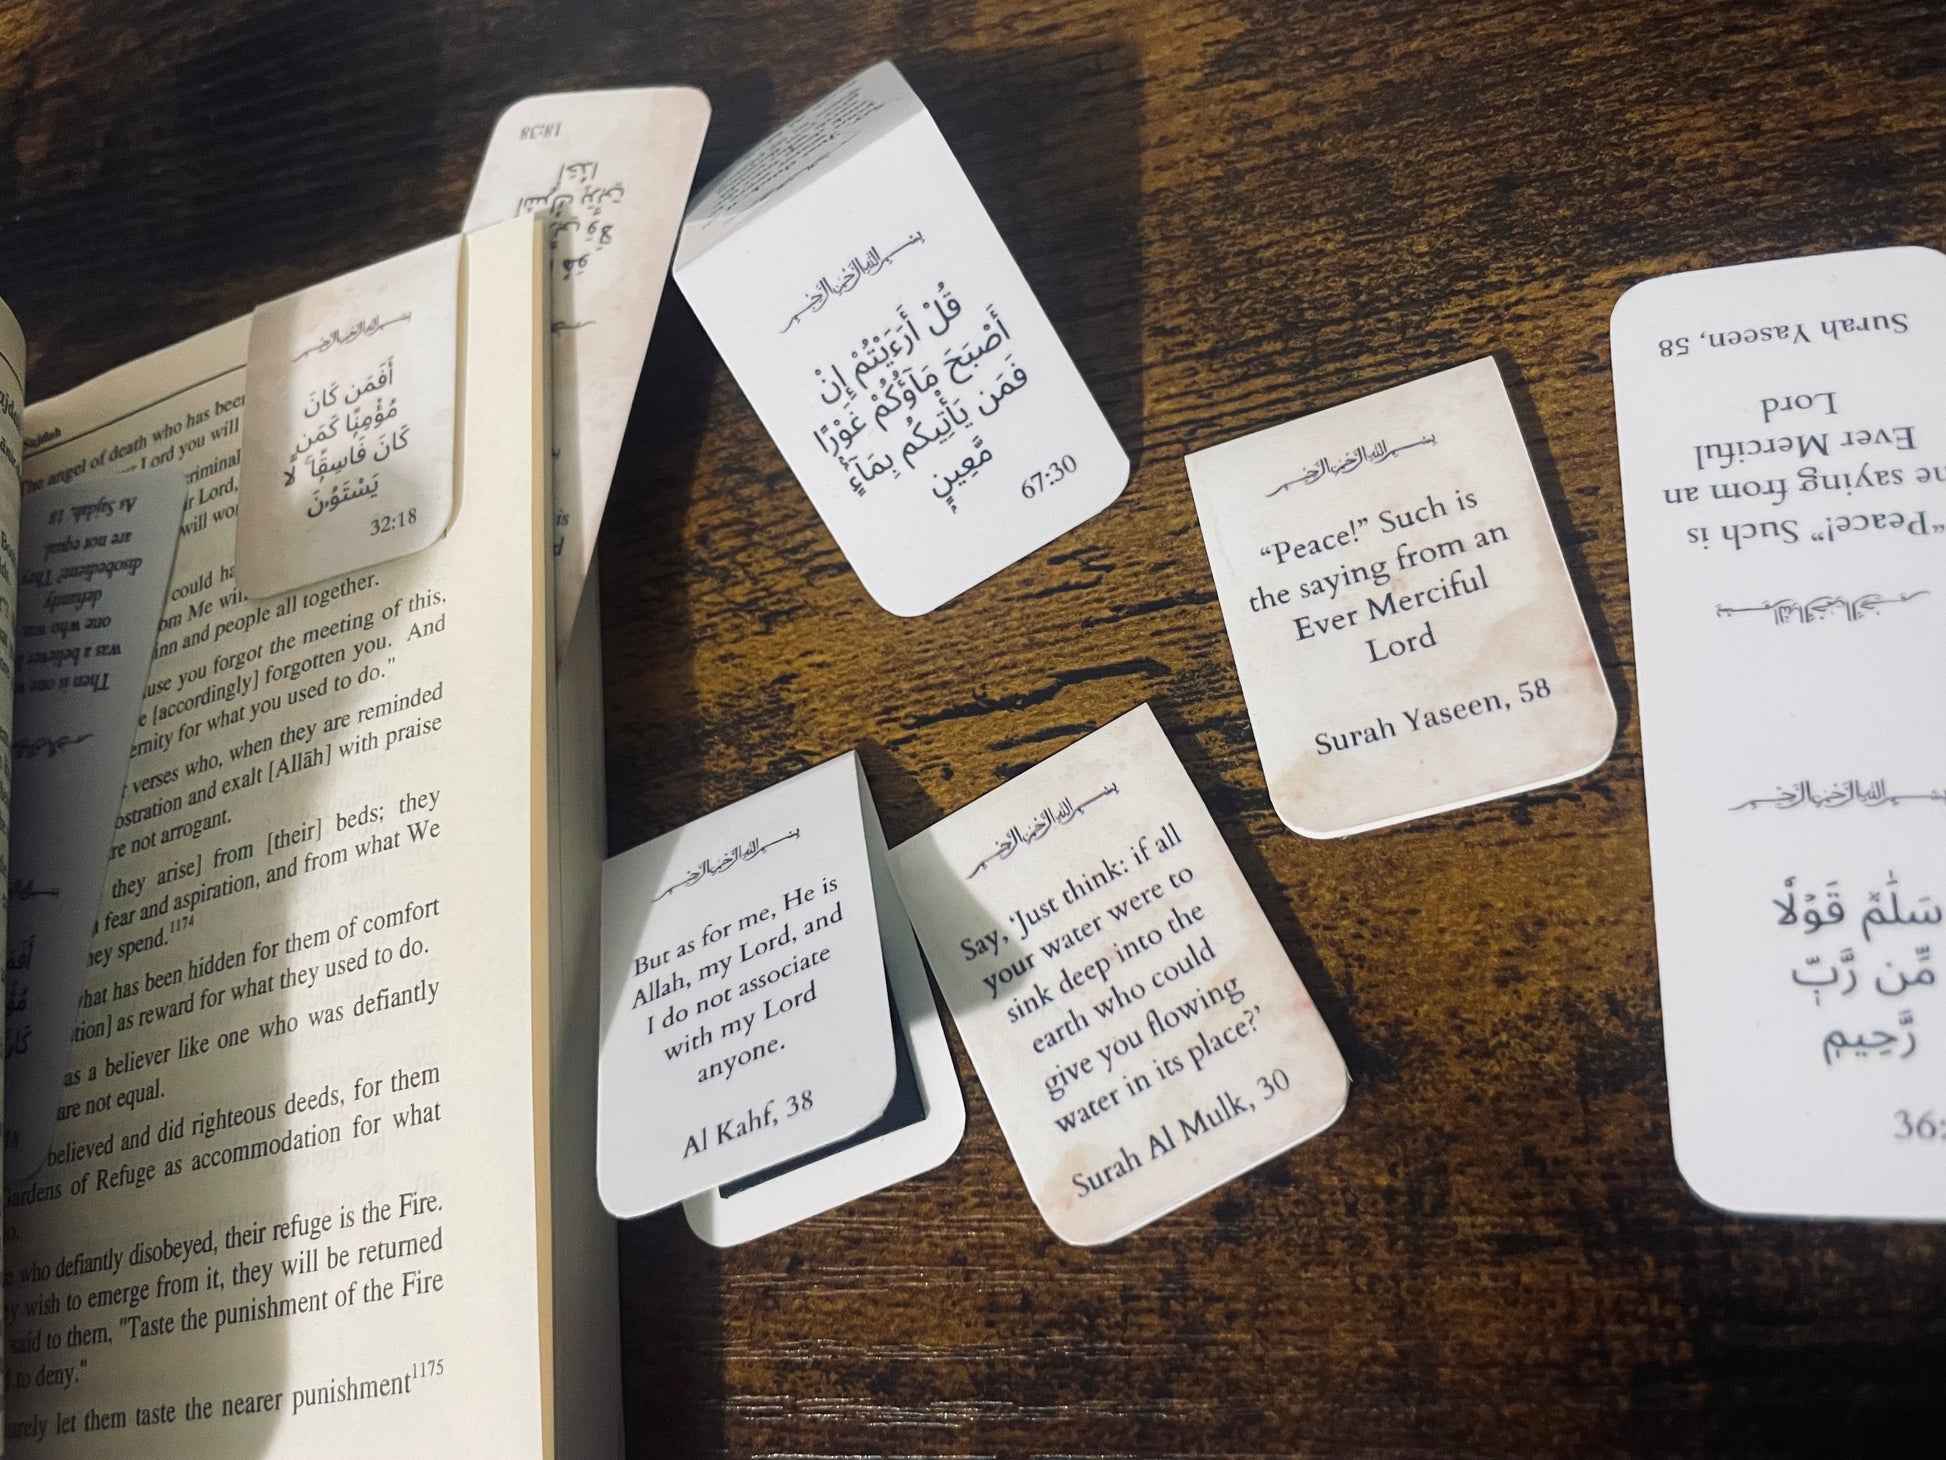 Sajdah
The angel of death who has been
Lord you will
criminal
r Lord,
will wo
could ha
om Me will
inn and people all together.
use you forgot the meeting of this,
e [accordingly] forgotten you. And
ernity for what you used to do."
verses who, when they are reminded
ostration and exalt [Allāh] with praise
re not arrogant.
they arise] from [their] beds; they
fear and aspiration, and from what We
hey spend.1174
hat has been hidden for them of comfort
tion] as reward for what they used to do.
as a believer like one who was defiantly
are not equal.
believed and did righteous deeds, for them
Gardens of Refuge as accommodation for what
who defiantly disobeyed, their refuge is the Fire.
y wish to emerge from it, they will be returned
said to them, "Taste the punishment of the Fire
to deny."
rely let them taste the nearer punishment1175
Then is one w
was a believer
one who was
defiantly
disobedient? They
are not equal.
As Sajdah, 18
بسم الله الرحمن الرحيم
أَفَمَن كَانَ
مُؤْمِنًا كَمَن
كَانَ فَاسِقًا ۚ لَّا
يَسْتَوُۥنَ
32:18
18:38
بسم الله الرحمن الرحيم
قُلْ أَرَءَيْتُمْ إِنْ
أَصْبَحَ مَآؤُكُمْ غَوْرًا
فَمَن يَأْتِيكُم بِمَآءٍۢ
مَّعِينٍۭ
67:30
بسم الله الرحمن الرحيم
“Peace!” Such is
the saying from an
Ever Merciful
Lord
Surah Yaseen, 58
بسم الله الرحمن الرحيم
But as for me, He is
Allah, my Lord, and
I do not associate
with my Lord
anyone.
Al Kahf, 38
بسم الله الرحمن الرحيم
Say, ‘Just think: if all
your water were to
sink deep into the
earth who could
give you flowing
water in its place?’
Surah Al Mulk, 30
بسم الله الرحمن الرحيم
“Peace!” Such is
he saying from an
Ever Merciful
Lord
Surah Yaseen, 58
بسم الله الرحمن الرحيم
سَلَٰمٌ قَوْلًا
مِّن رَّبٍّ
رَّحِيمٍ
36: